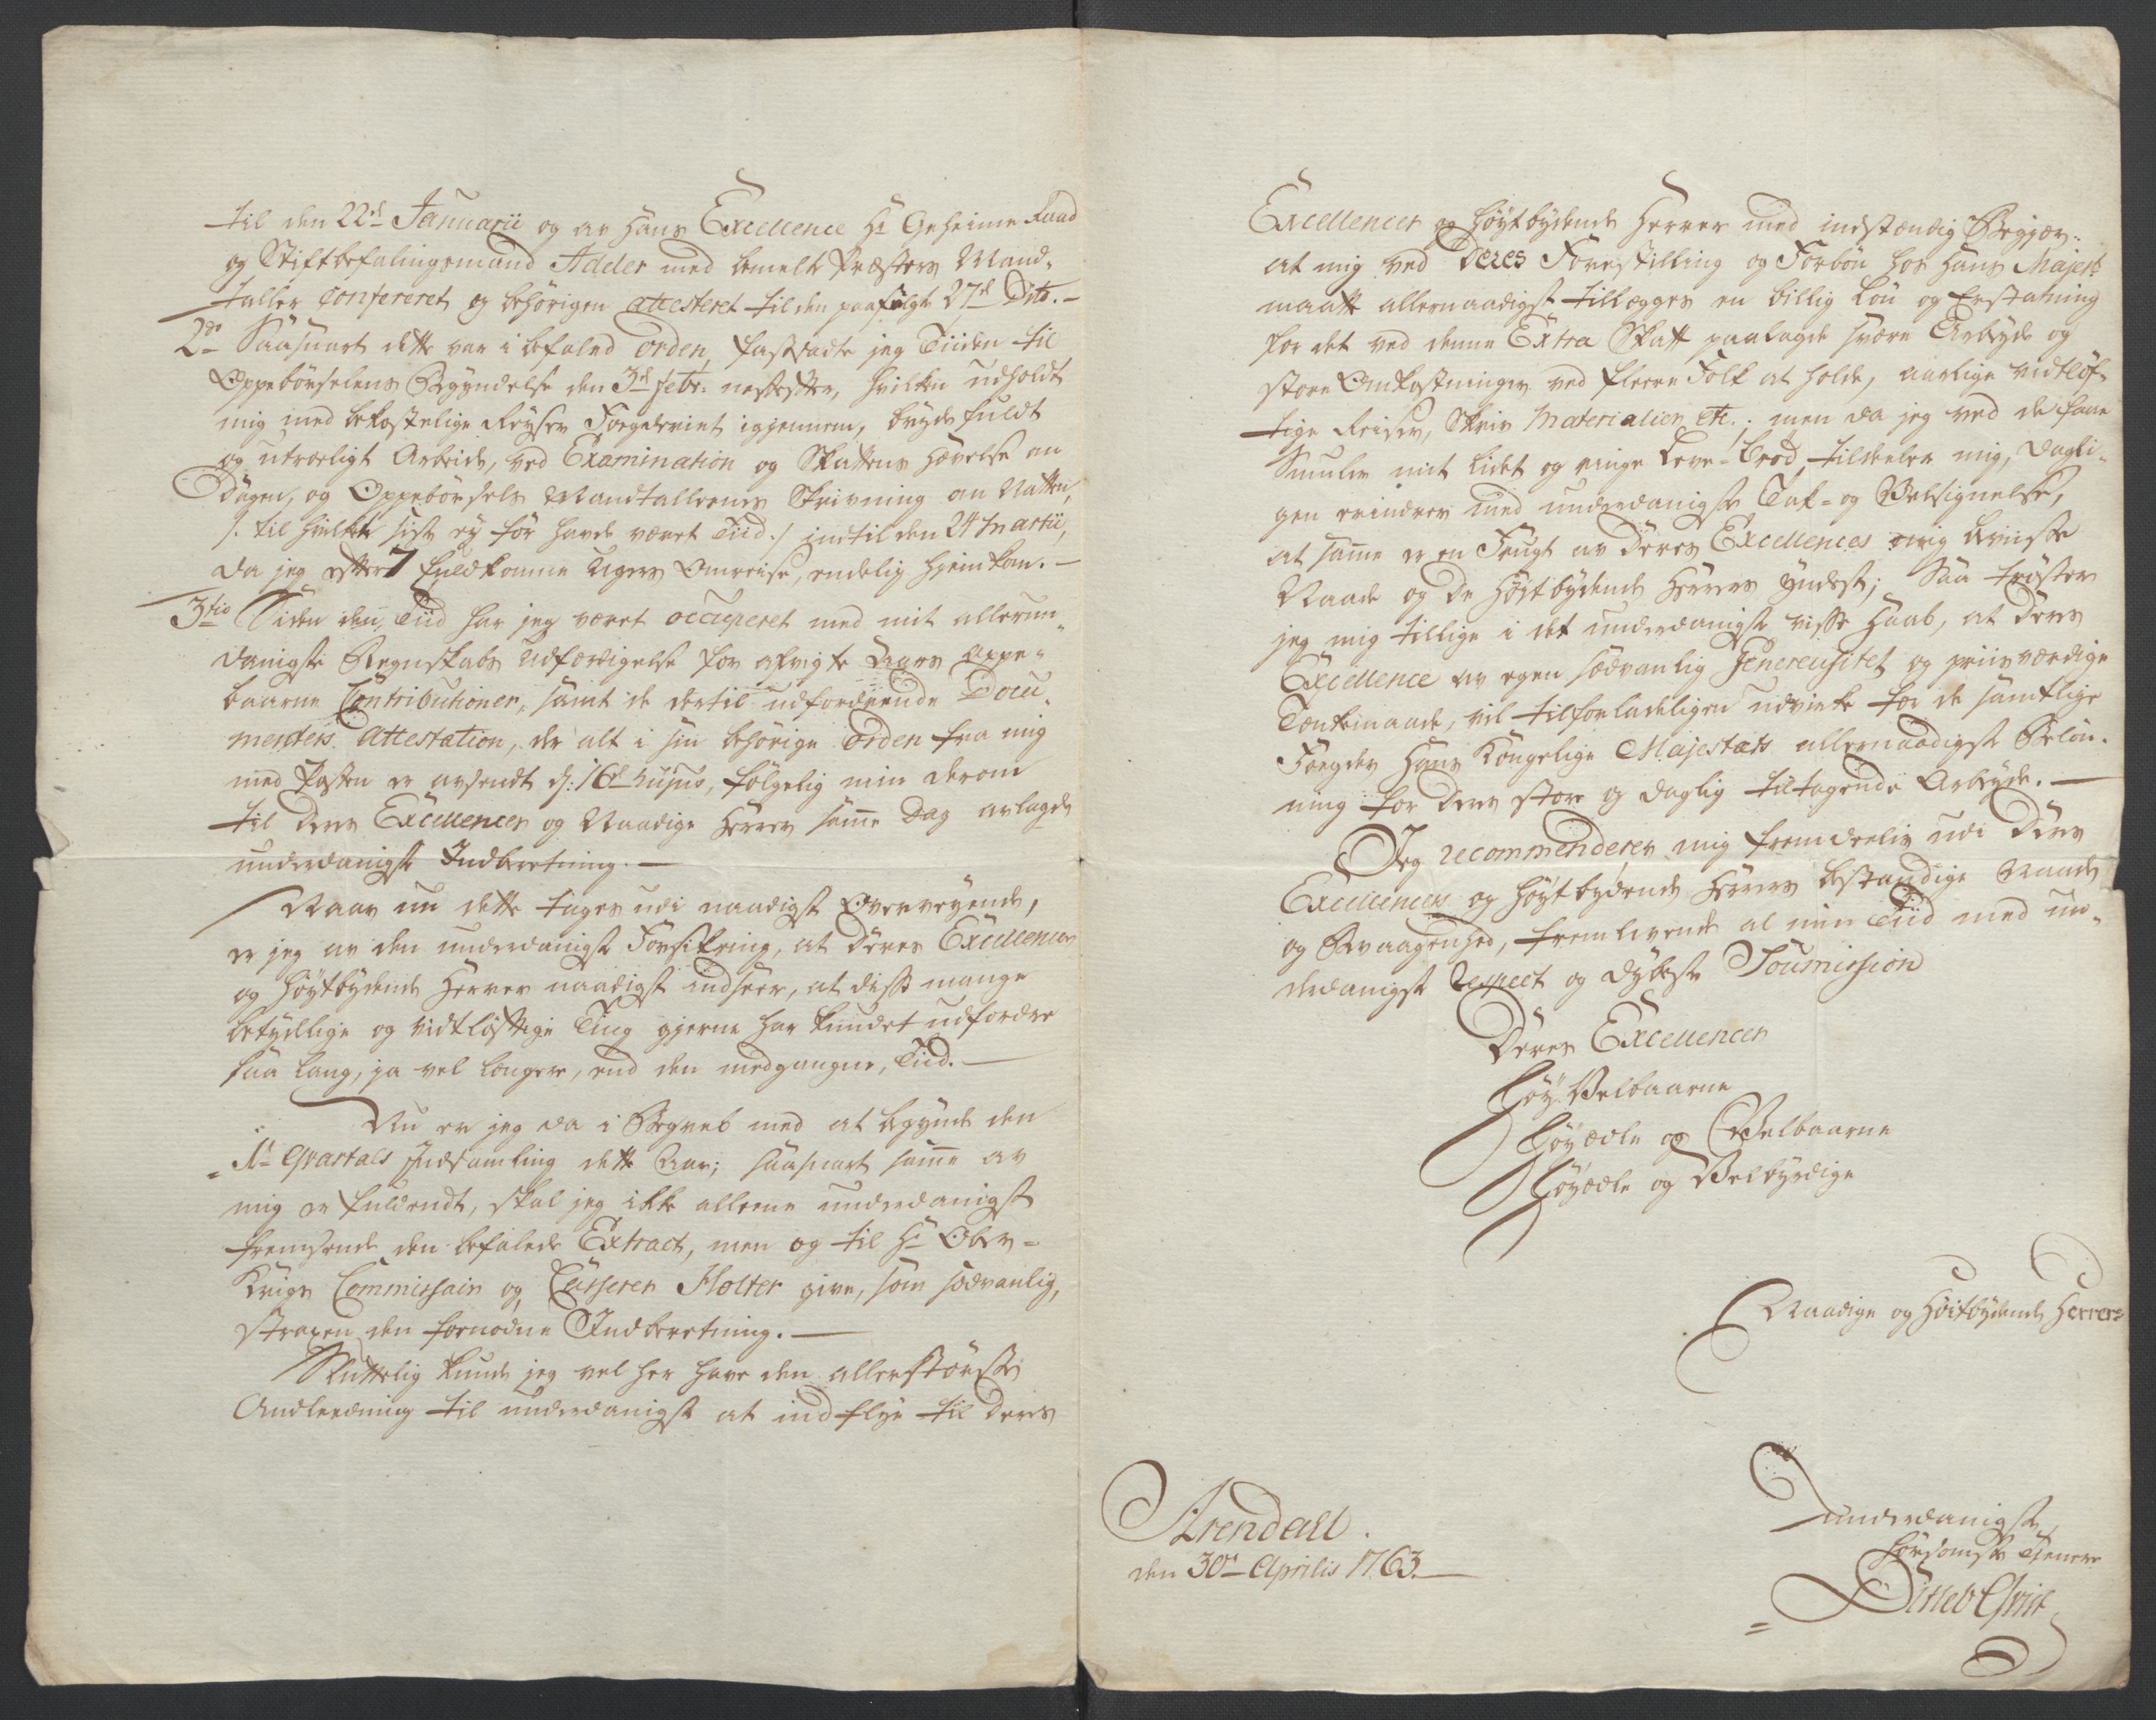 til den 22d Januarii og av Hans Excellence Hr Geheime Raad
og Stiftbefalingsmand Adeler med bemelte Præsters Mand-
taller confereret og behörigen attesteret til den paafulgte 27d Dito. —
2do Saasnart dette var i befaled Orden, fastsadte jeg Tiiden til
Oppebörselens Begyndelse den 3d Febr: nestefter, hvilken udholdt
mig med bekostelige Reyser Fogderiet igjennem, bryde fuldt
og utroeligt Arbeide, ved Examination og Skattens Hævelse om
Dagen, og Oppebörsels Mandtallernes Skrivning om Natten,
/: til hvilket sidste ey för havde været Tiid :/ indtil den 24 Martii,
da jeg efter 7 fuldkomne Ugers Omreise, endelig hjemkom. —
3tio Siden den Tiid har jeg været occuperet med mit allerun-
danigste Regnskabs Udfærdigelse for afvigte Aars oppe-
baarne Contributioner, samt de dertil udfordrende Docu-
menters Attestation, der alt i sin behörige Orden fra mig
med Posten er avsendt d: 16d hujus, fölgelig min derom
til Deres Excellencer og Naadige Herrer samme Dag avlagde
underdanigste Indberetning. —
Naar nu dette tages udi naadigst Overveyende,
er jeg av den underdanigste Forsikring, at Deres Excellencer
og Höytbydende Herrer naadigst indseer, at disse mange
betydelige og vidtlöftige Ting gjerne har kundet udfordre
saa lang, ja vel længere, end den medgangne, Tiid. —
Nu er jeg da i Begreb med at begynde den
1te Qvartals Indsamling dette Aar; saasnart samme av
mig er fuldendt, skal jeg ikke alleene underdanigst
fremsende den befalede Extract, men og til Hr Ober-
Krigs Commissair og Casserer Holter give, som sædvanlig,
strapen den fornødne Indberetning. —
Sluttelig kunde jeg vel her have den allerstörste
Andleedning til underdanigst at indflye til Deres
Excellencer og Höytbydende Herrer med indstændig Begjær:
at mig ved Deres Forestilling og Forbön hos Hans Majestt
maatte allernaadigst tillægges en billig Lön og Erstatning
for det ved denne Extra Skatt paalagde svære Arbeyde og
store Omkostninger ved fleere Folk at holde, aarlige vidtlöf-
tige Reiser, Skriv Materialier, etc.; men da jeg ved de faae
Smuler mit lidet og ringe Leve-Bröd tildeeler mig, dagli-
gen erindrer med underdanigste Tak- og Velsignelse,
at samme er en Frugt av Deres Excellences mig beviiste
Naade og De Höitbydende Herrers Yndest; Saa tröster
jeg mig tillige i det underdanigst visse Haab, at Deres
Excellence av egen sædvanlig Genereusitet og priisværdige
Tænkemaade, vil tilforladeligen udvirke for de samtlige
Fogder Hans Kongelige Majestæts allernaadigste Belön-
ning for Deres store og daglig tiltagende Arbeyde. —
Jeg recommenderer mig fremdeeles udi Deres
Excellencers og Höytbydende Herrers bestandige Naade
og Bevaagenhed, fremlevende al min Tiid med un-
derdanigst Respect og dybeste Soumission
Deres Excellencer
Höy Velbaarne
Höyædle og Velbaarne
Höyædle og Velbyrdige
Naadige og Höitbydende Herrers
Arendall.
den 30te Aprilis 1763. —
underdanigste
hörsomste Tjener
Ditleb Qvist